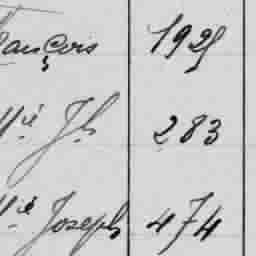 ançois 1925
Mie Jh 283
Mie Joseph 474